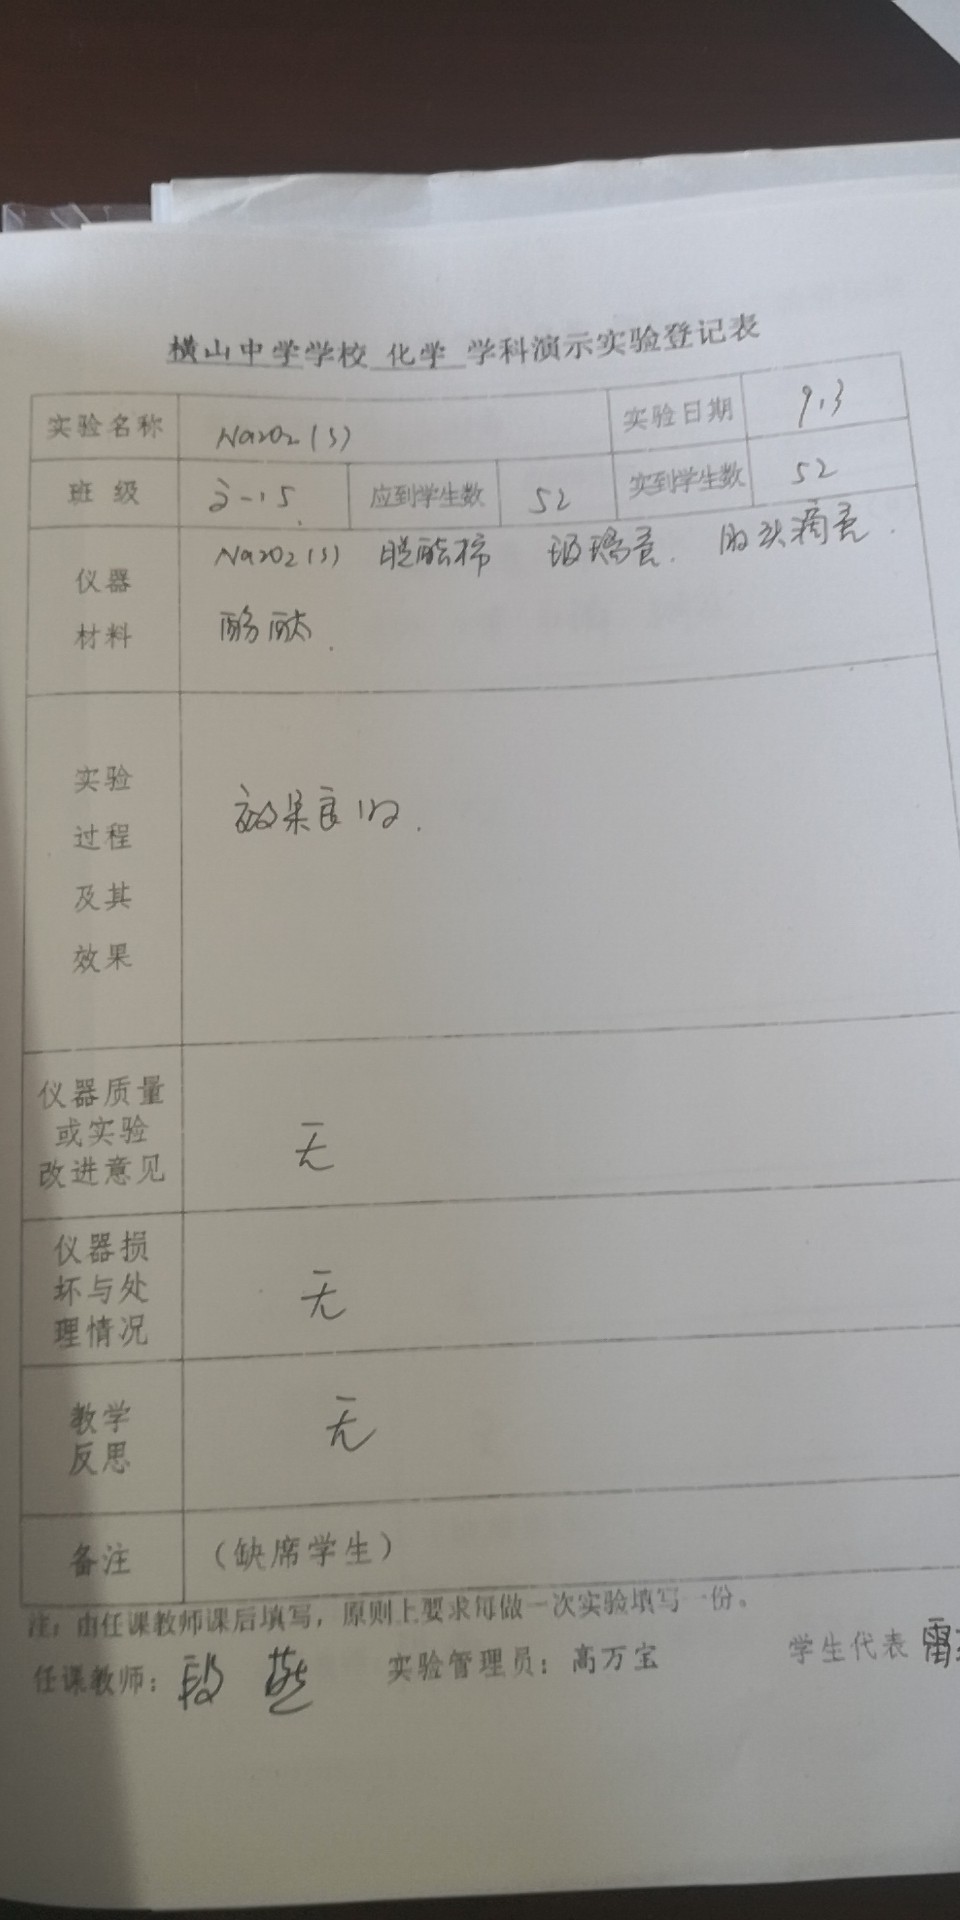 横山中学学校 化学 学科演示实验登记表
实验名称 Na2O2(s) 实验日期 9.3
班级 高一15. 应到学生数 52 实到学生数 52
仪器 Na2O2(s) 脱脂棉 玻璃管. 胶头滴管.
材料 酚酞.
实验
过程 效果良好.
及其
效果
仪器质量
或实验 无
改进意见
仪器损
坏与处 无
理情况
教学 无
反思
备注 (缺席学生)
注:由任课教师课后填写,原则上要求每做一次实验填写一份。
任课教师: 段 实验管理员:高万宝 学生代表 雷